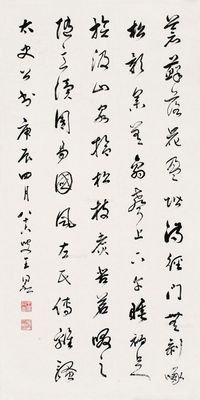 蒼蘚落花盈堦滿徑門無剝啄
松影參差禽聲上下午睡初足
旋汲山泉拾松枝煮苦茗啜之
隨意讀周易國風左氏傳離騷
太史公書 庚辰四月 王